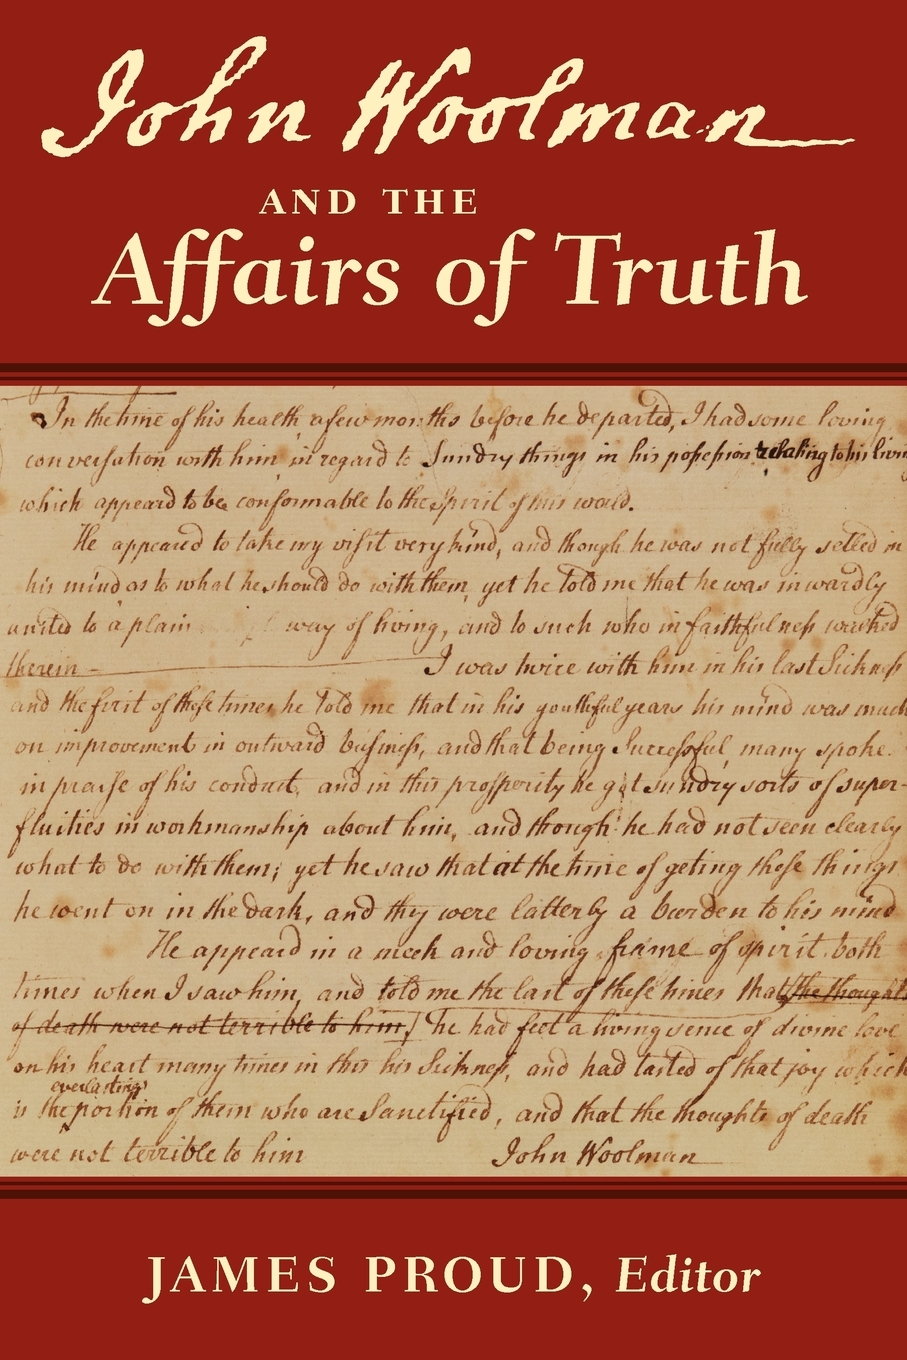 John Woolman
AND THE
Affairs of Truth
In the time of his health a few months before he departed, I had some loving
conversation with him in regard to Sundry things in his possession relating to his living
which appeard to be conformable to the Spirit of this world.
He appeared to take my visit very kind, and though he was not fully setled in
his mind as to what he should do with them, yet he told me that he was inwardly
united to a plain way of living, and to such who in faithfulness walked
therein — I was twice with him in his last Sickness
and the first of these times he told me that in his youthful years his mind was much
on improvement in outward business, and that being Successful, many spoke
in praise of his conduct, and in this prosperity he got sundry sorts of super-
fluities in workmanship about him, and though he had not seen clearly
what to do with them; yet he saw that at the time of geting these things
he went on in the dark, and they were latterly a burden to his mind
He appeard in a meek and loving frame of spirit both
times when I saw him, and told me the last of these times that the thoughts
of death were not terrible to him, he had feet a living sence of divine love
on his heart many times in this his Sickness, and had tasted of that joy which
everlasting
is the portion of them who are Sanctified, and that the thoughts of death
were not terrible to him John Woolman
JAMES PROUD, Editor